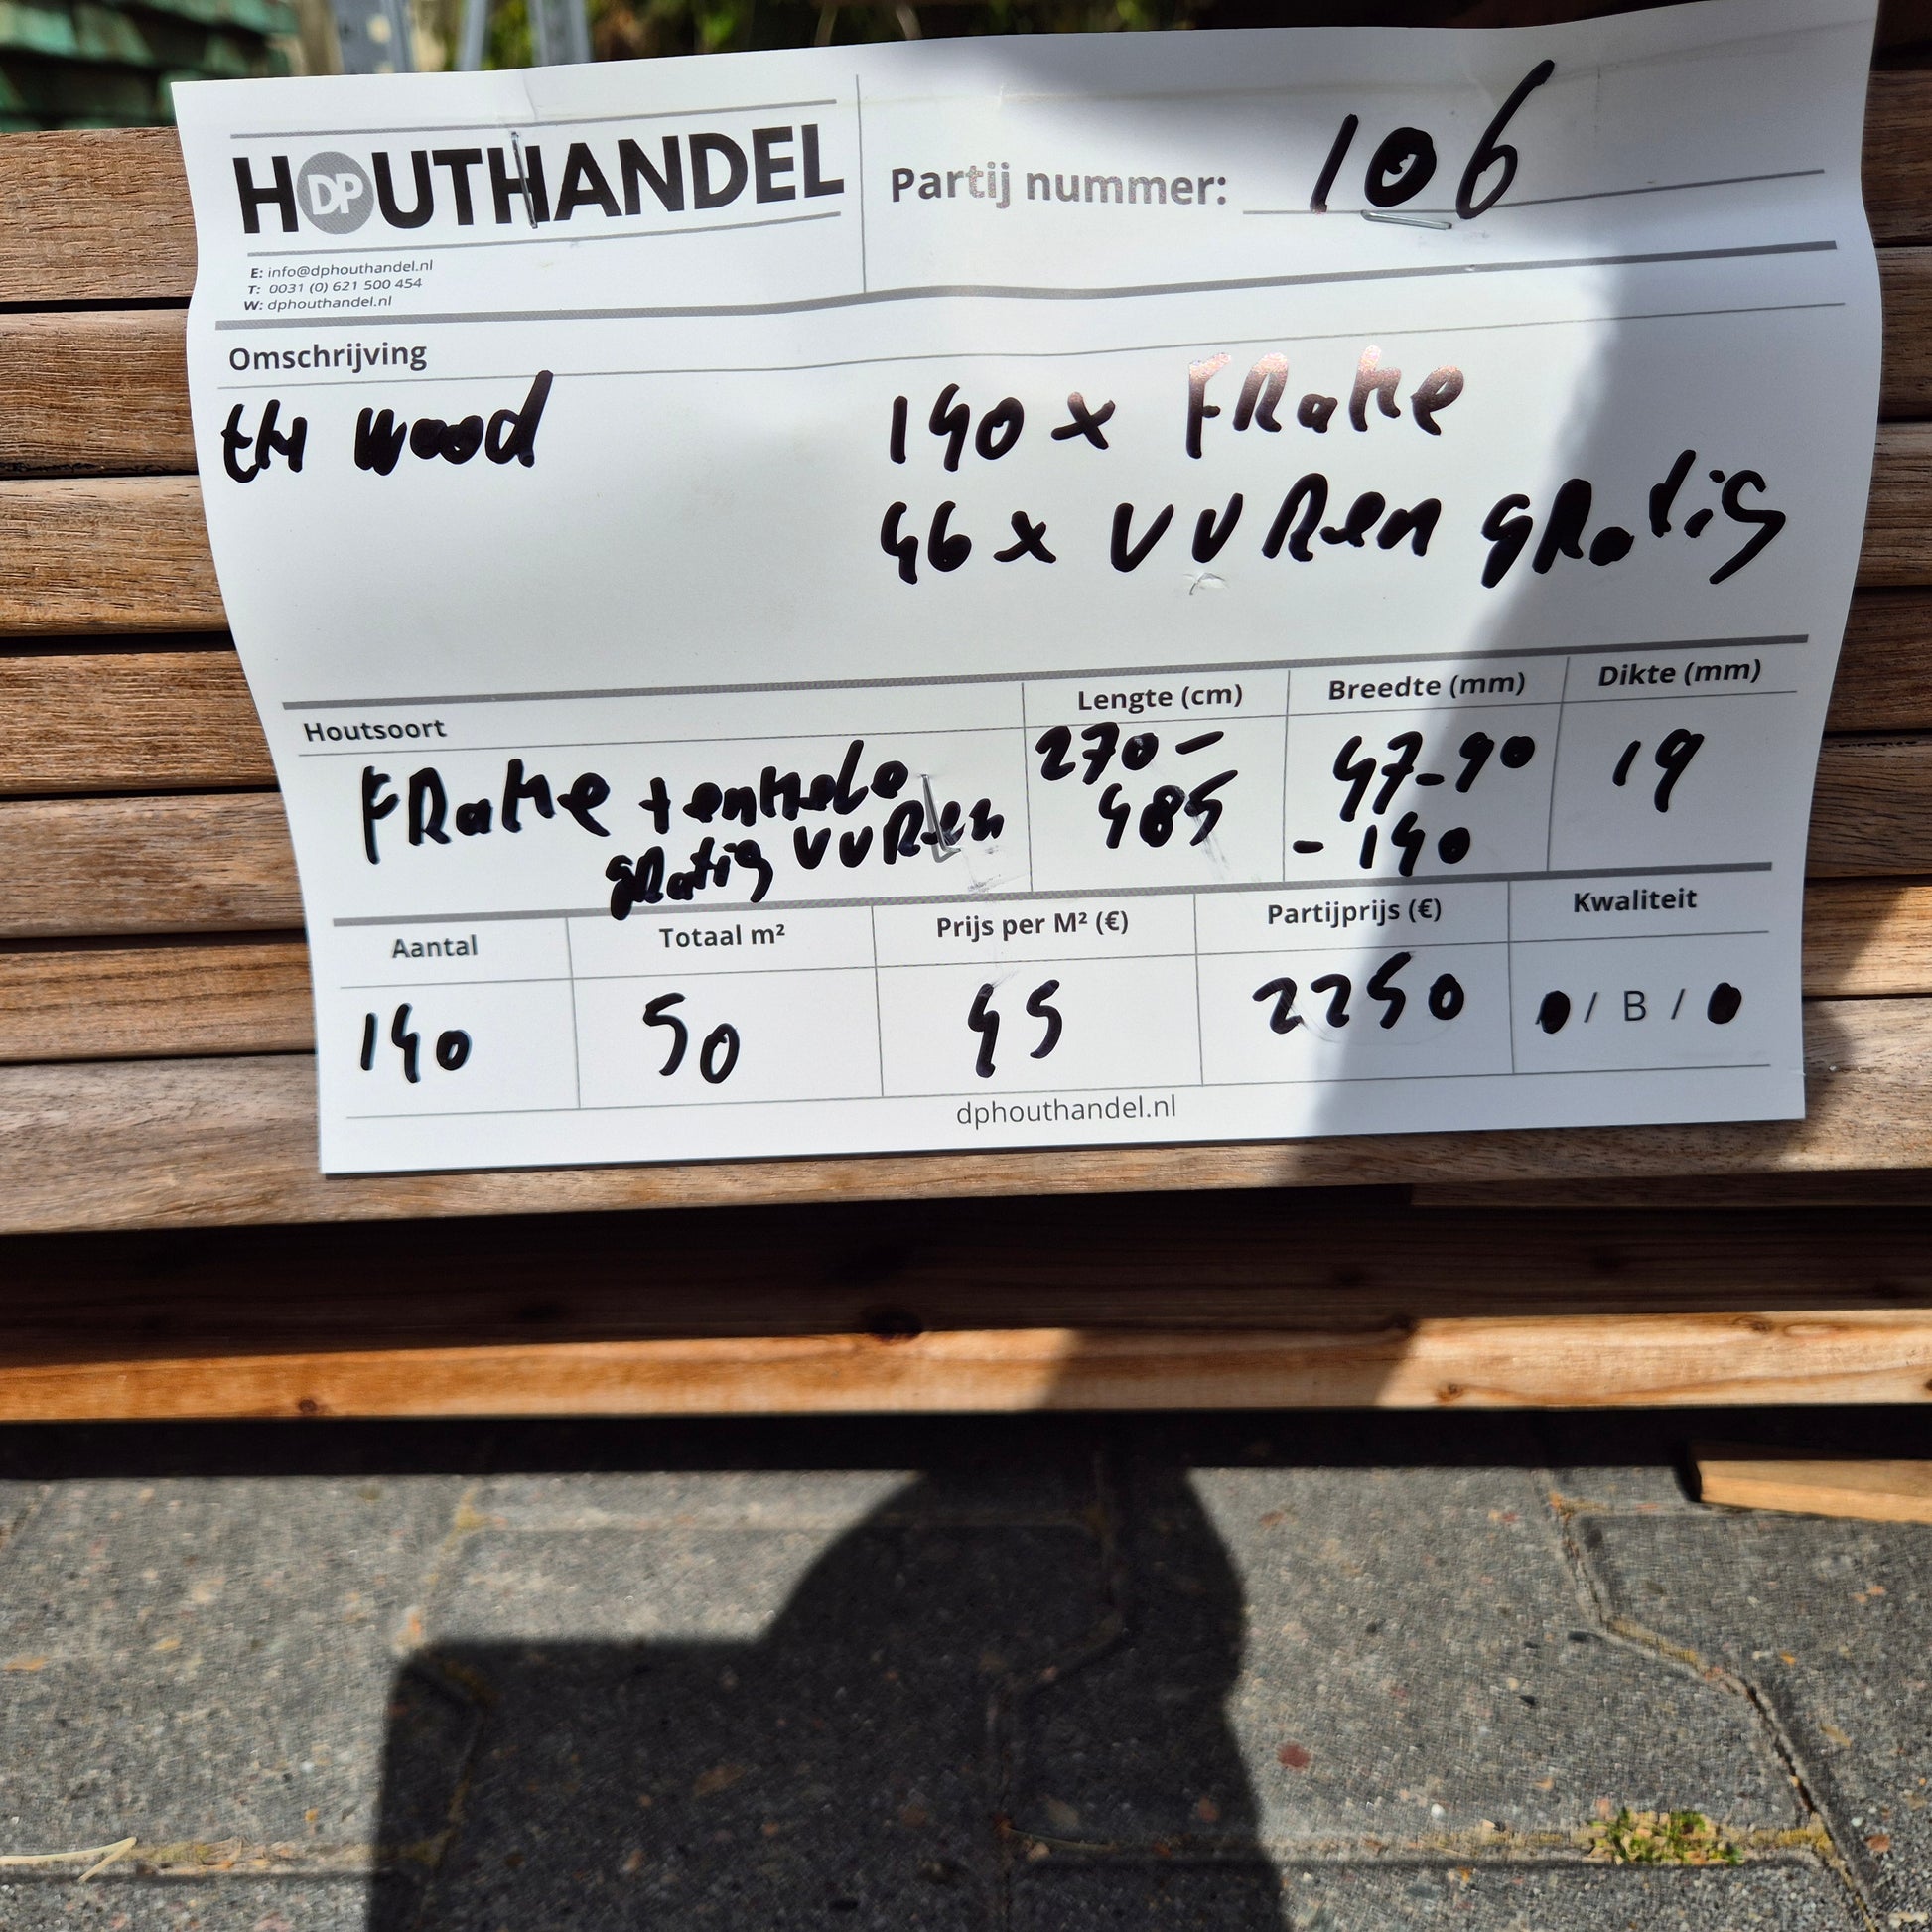 HOUTHANDEL
DP
Partij nummer: 106
E: info@dphouthandel.nl
T: 0031 (0) 621 500 454
W: dphouthandel.nl
Omschrijving
wood
140 x FRake
46 x VUREn gRatis
Houtsoort
Lengte (cm)
Breedte (mm)
Dikte (mm)
FRake + enkele
gRatis VUREn
270 -
485
47 - 90
- 140
19
Aantal
Totaal m²
Prijs per M² (€)
Partijprijs (€)
Kwaliteit
140
50
45
2250
/ B /
dphouthandel.nl